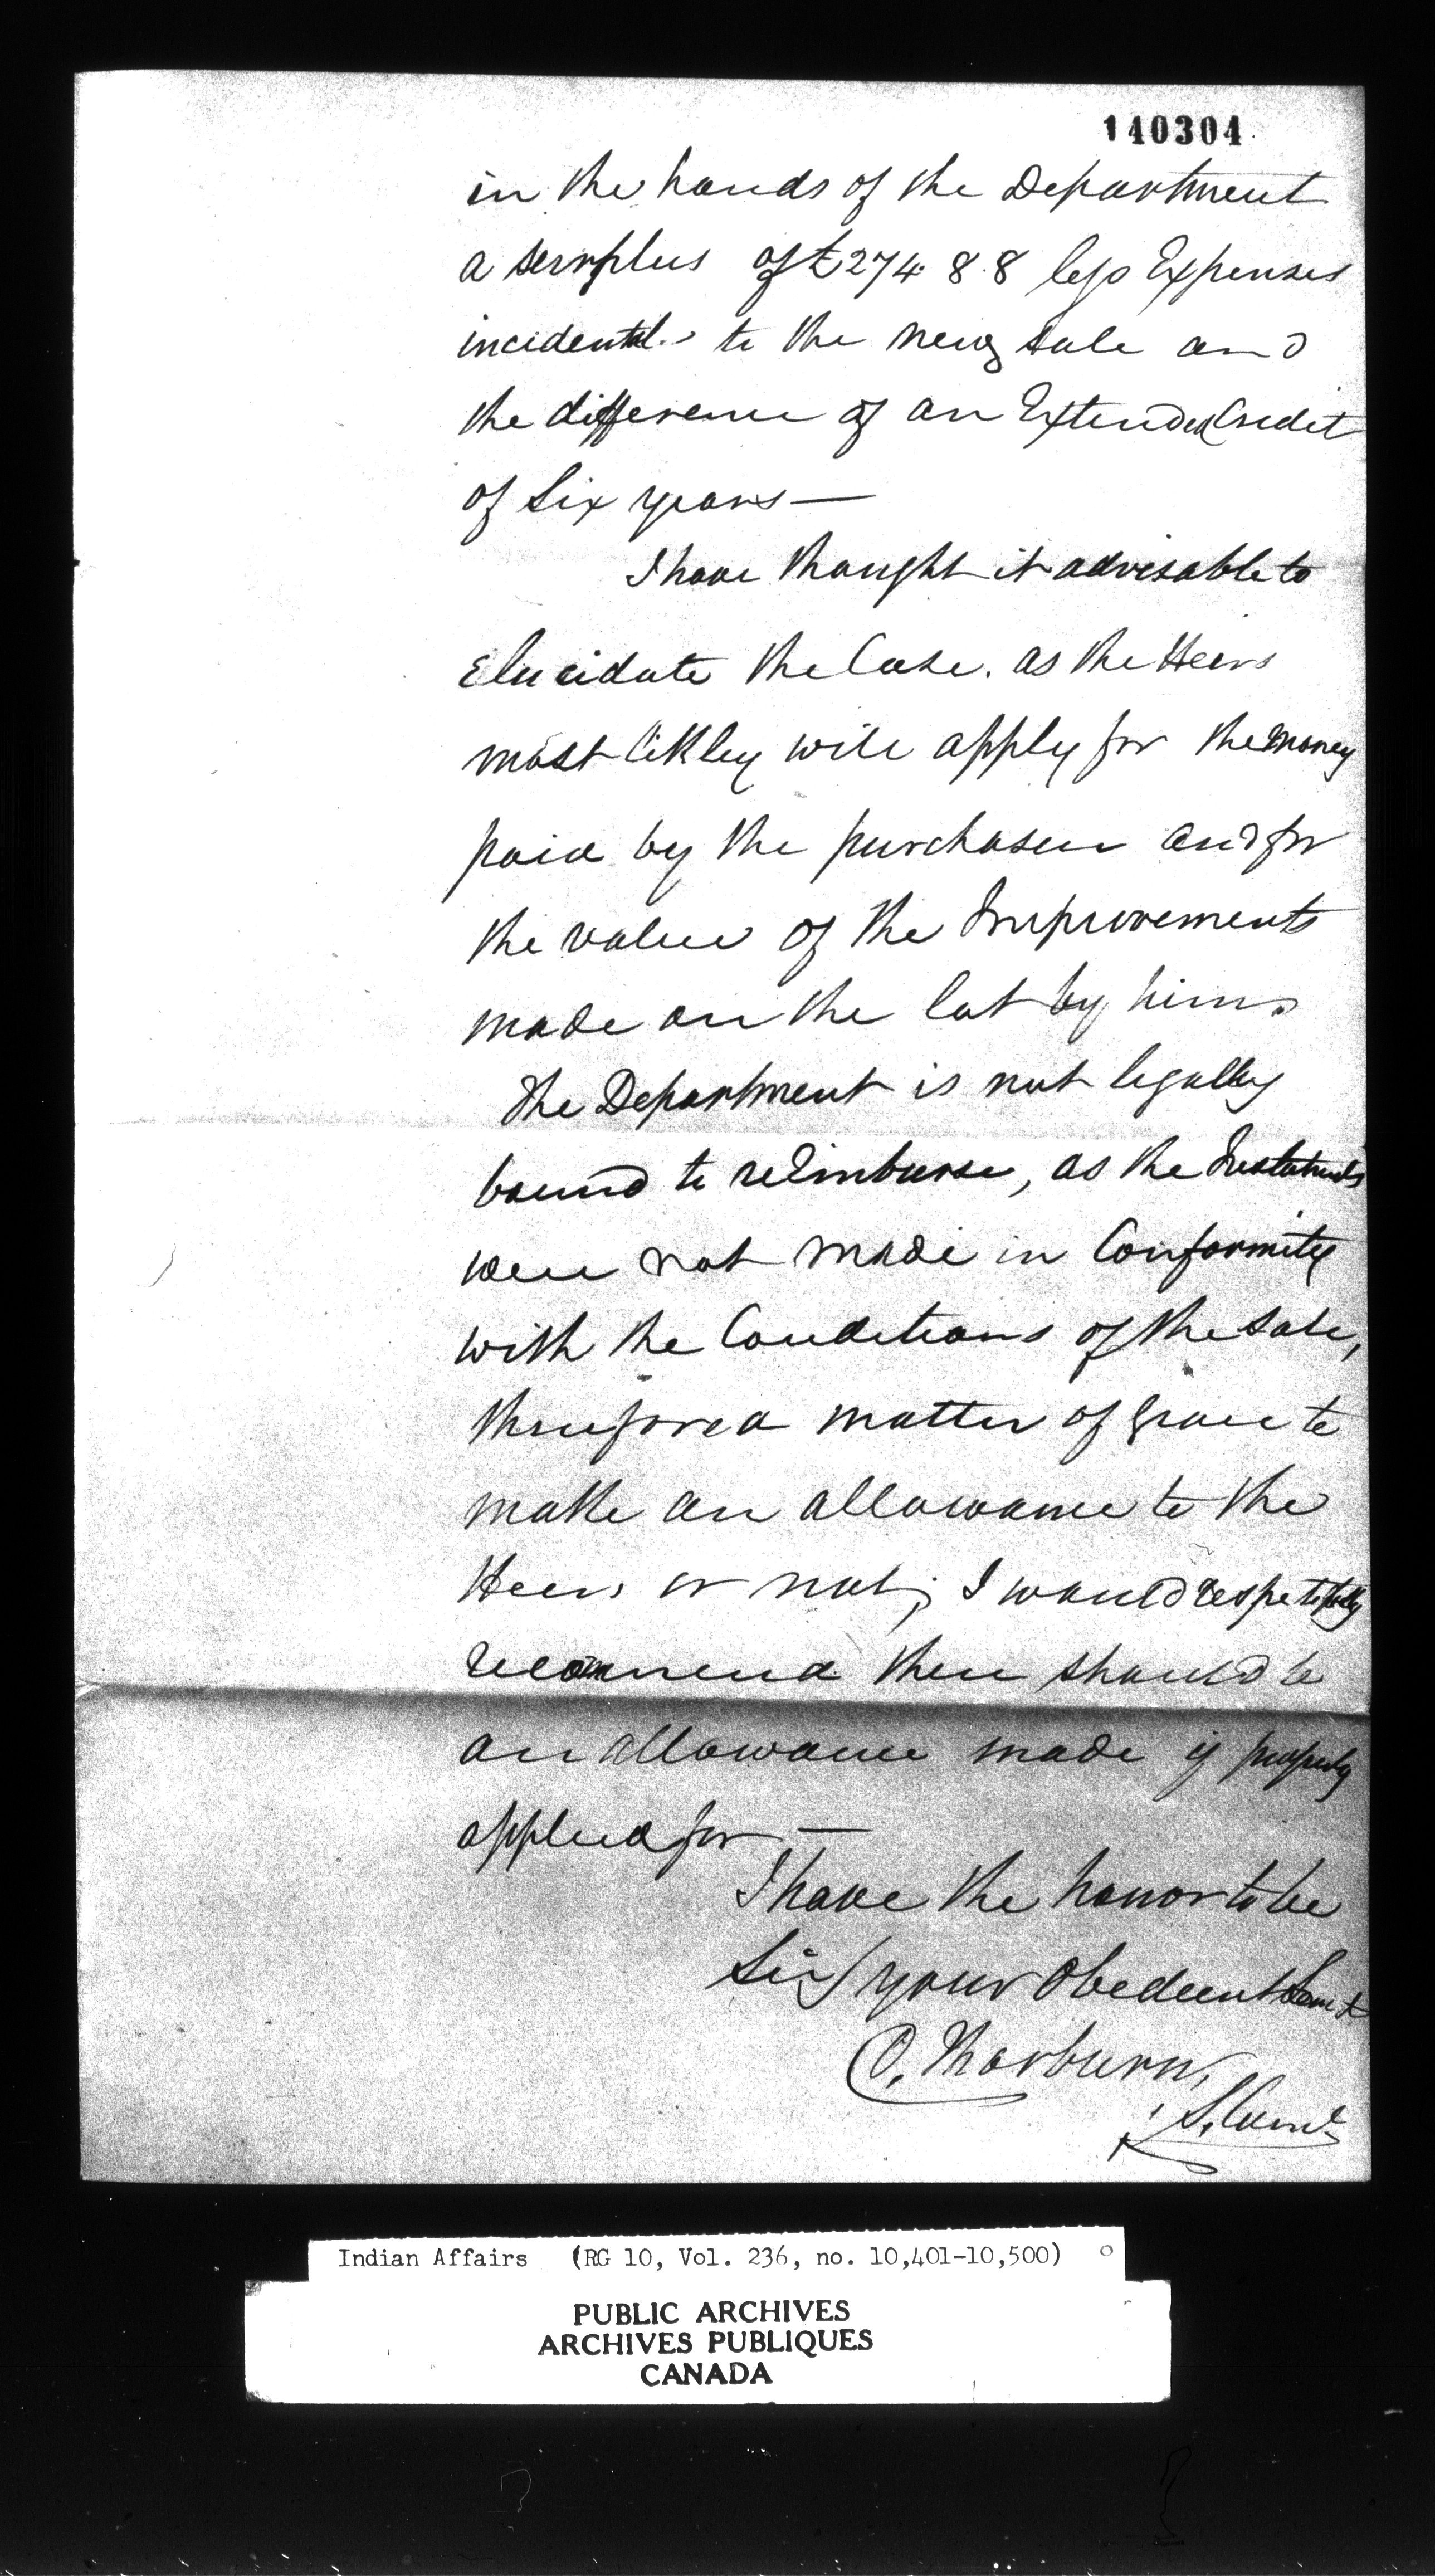 140304
in the hands of the Department
a surplus of £274. 8. 8 less Expenses
incidental to the new sale and
the difference of an Extended Credit
of Six years —
I have thought it advisable to
Elucidate the Case. as the Heirs
most likley will apply for the money
paid by the purchaser and for
the value of the Improvements
made on the lot by him.
The Department is not legally
bound to reimburse, as the Instalments
were not made in Conformity
with the Conditions of the Sale,
therefore a matter of grace to
make an allowance to the
Heirs or not; I would respectfully
recommend there should be
an allowance made if properly
applied for —
I have the honor to be
Sir / your Obedient Servt
D. Thorburn,
S. Comr
Indian Affairs (RG 10, Vol. 236, no. 10,401-10,500)
PUBLIC ARCHIVES
ARCHIVES PUBLIQUES
CANADA